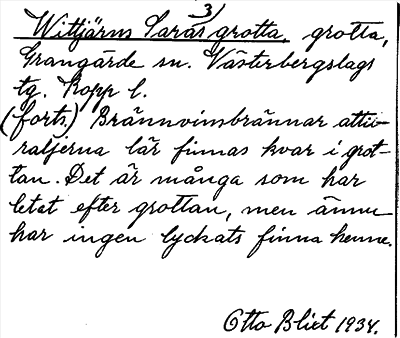 3)
Wittjärns Saras grotta, grotta,
Grangärde sn. Västerbergslags
tg. Kopp. l.
(forts.) Brännvinsbrännar attiv-
raljerna lär finnas kvar i grot-
tan. Det är många som har
letat efter grottan, men ännu
har ingen lyckats finna henne.
Otto Blixt 1934.